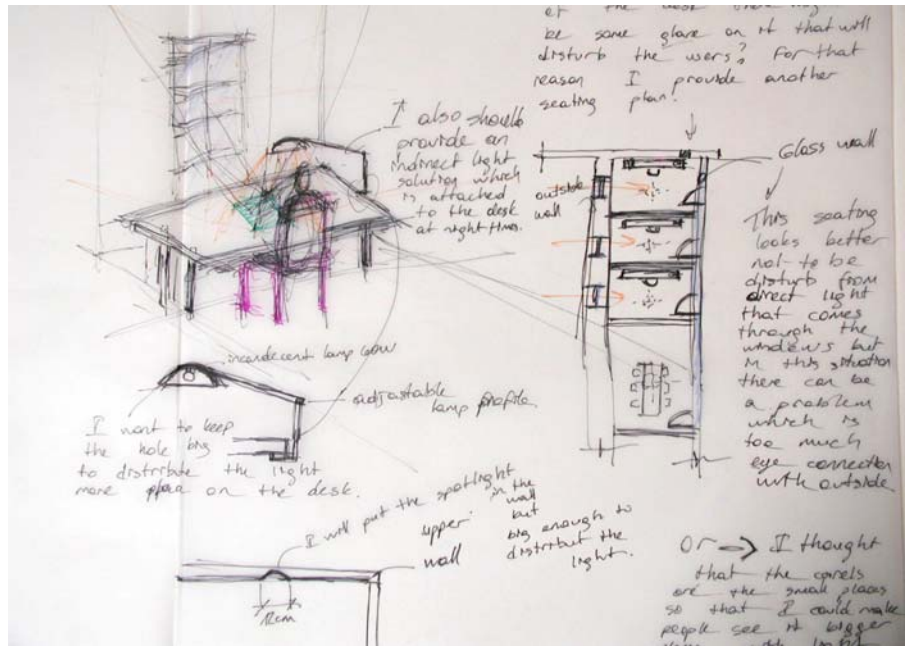 at the desk there
be some glare on it that will
disturb the users? For that
reason I provide another
seating plan!
I also should
provide an
indirect light
solution which
is attached
to the desk
at night times.
outside
wall
Glass wall
This seating
looks better
not to be
disturb from
direct light
that comes
through the
windows but
in this situation
there can be
a problem
which is
too much
eye connection
with outside
incandecent lamp
adjastable
lamp profile.
I want to keep
the hole big
to distribute the light
more on the desk.
I will put the spotlight in the
upper wall
wall but
big enough to
distribut the
light.
12cm
Or I thought
that the carels
are the small places
so that I could make
people see it bigger
with light